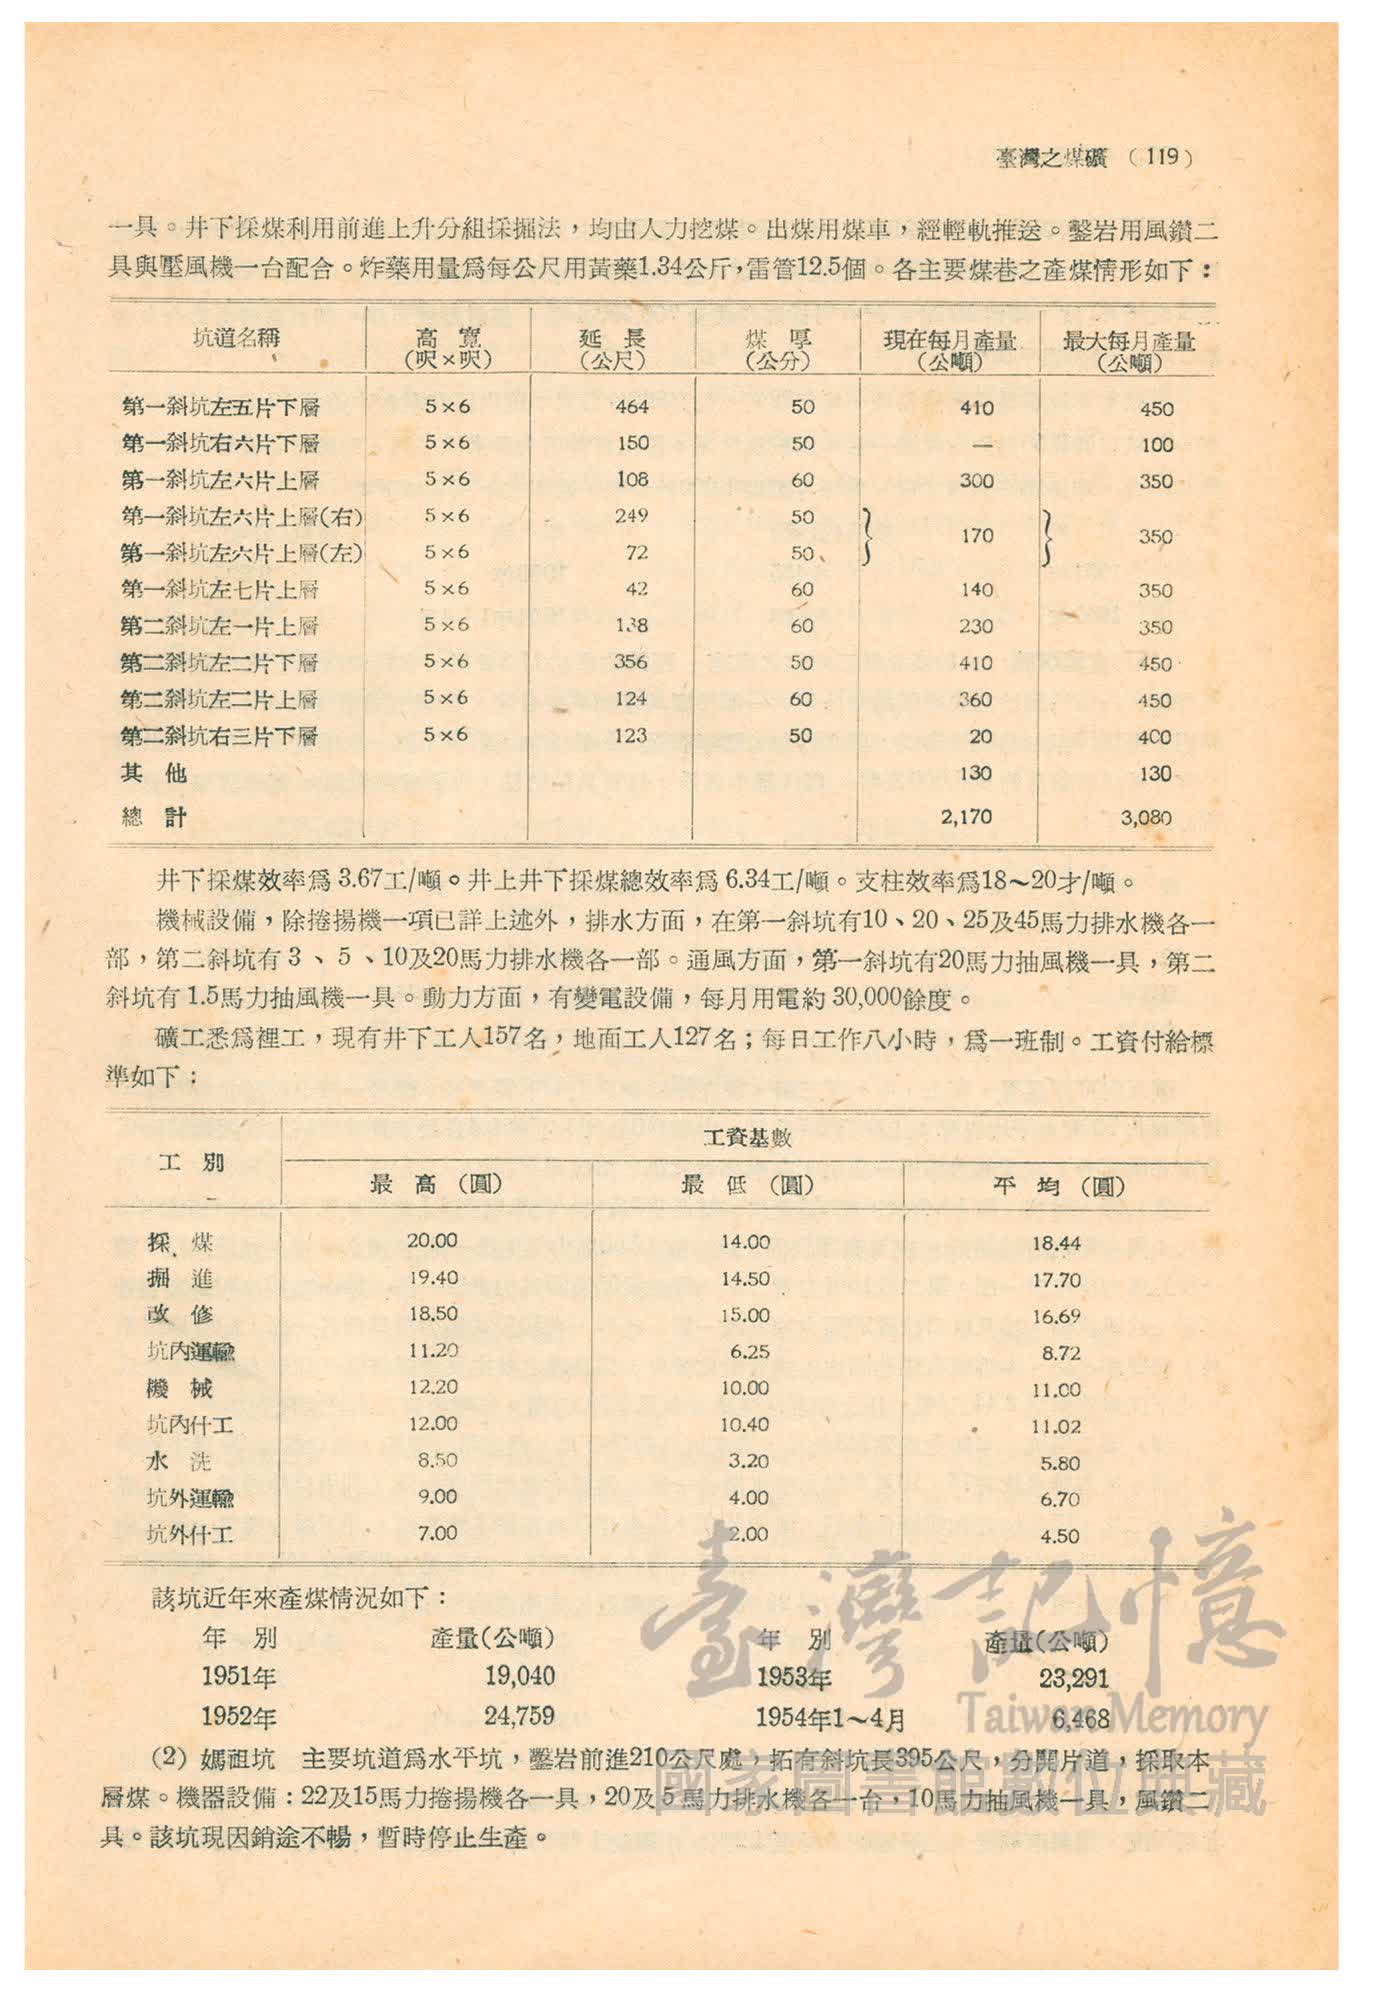 臺灣之煤礦 (119)
一具。井下採煤利用前進上升分組採掘法，均由人力挖煤。出煤用煤車，經輕軌推送。鑿岩用風鑽二
具與壓風機一台配合。炸藥用量爲每公尺用黃藥1.34公斤，雷管12.5個。各主要煤巷之產煤情形如下：
坑道名稱 高寬(呎×呎) 延長(公尺) 煤厚(公分) 現在每月產量(公噸) 最大每月產量(公噸)
第一斜坑左五片下層 5×6 464 50 410 450
第一斜坑右六片下層 5×6 150 50 — 100
第一斜坑左六片上層 5×6 108 60 300 350
第一斜坑左六片上層(右) 5×6 249 50 } 170 } 350
第一斜坑左六片上層(左) 5×6 72 50
第一斜坑左七片上層 5×6 42 60 140 350
第二斜坑左一片上層 5×6 138 60 230 350
第二斜坑左二片下層 5×6 356 50 410 450
第二斜坑左二片上層 5×6 124 60 360 450
第二斜坑右三片下層 5×6 123 50 20 400
其他 130 130
總計 2,170 3,080
井下採煤效率爲3.67工/噸。井上井下採煤總效率爲6.34工/噸。支柱效率爲18～20才/噸。
機械設備，除捲揚機一項已詳上述外，排水方面，在第一斜坑有10、20、25及45馬力排水機各一
部，第二斜坑有3、5、10及20馬力排水機各一部。通風方面，第一斜坑有20馬力抽風機一具，第二
斜坑有1.5馬力抽風機一具。動力方面，有變電設備，每月用電約30,000餘度。
礦工悉爲裡工，現有井下工人157名，地面工人127名；每日工作八小時，爲一班制。工資付給標
準如下：
工別 工資基數
最高(圓) 最低(圓) 平均(圓)
採煤 20.00 14.00 18.44
掘進 19.40 14.50 17.70
改修 18.50 15.00 16.69
坑內運輸 11.20 6.25 8.72
機械 12.20 10.00 11.00
坑內什工 12.00 10.40 11.02
水洗 8.50 3.20 5.80
坑外運輸 9.00 4.00 6.70
坑外什工 7.00 2.00 4.50
該坑近年來產煤情況如下：
年別 產量(公噸) 年別 產量(公噸)
1951年 19,040 1953年 23,291
1952年 24,759 1954年1～4月 6,468
(2) 媽祖坑 主要坑道爲水平坑，鑿岩前進210公尺處，拓有斜坑長395公尺，分開片道，採取本
層煤。機器設備：22及15馬力捲揚機各一具，20及5馬力排水機各一台，10馬力抽風機一具，風鑽二
具。該坑現因銷途不暢，暫時停止生產。
臺灣記憶
Taiwan Memory
國家圖書館數位典藏